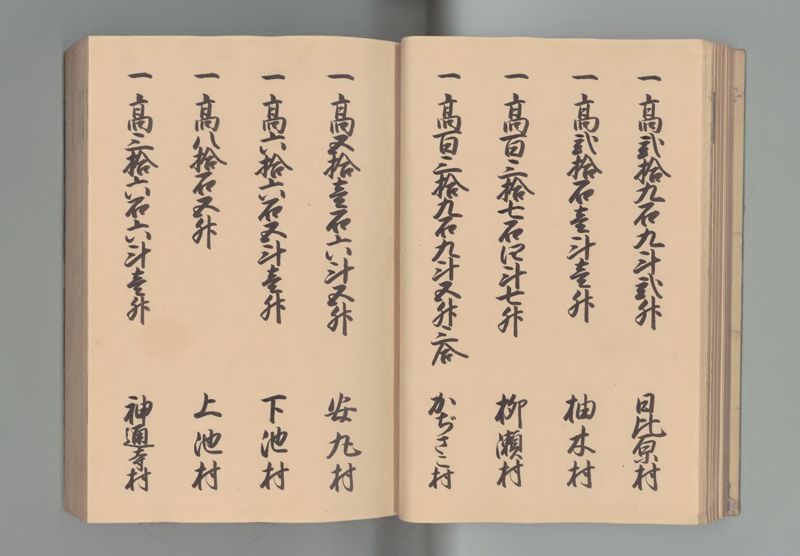 一 高弐拾九石九斗弐升 日比原村
一 高弐拾石壱斗壱升 柚木村
一 高百三拾七石四斗七升 柳瀬村
一 高百三拾九石九斗五升三合 かぢさこ村
一 高五拾壱石六斗五升 安丸村
一 高六拾六石五斗壱升 下池村
一 高八拾石五升 上池村
一 高三拾六石六斗壱升 神通寺村